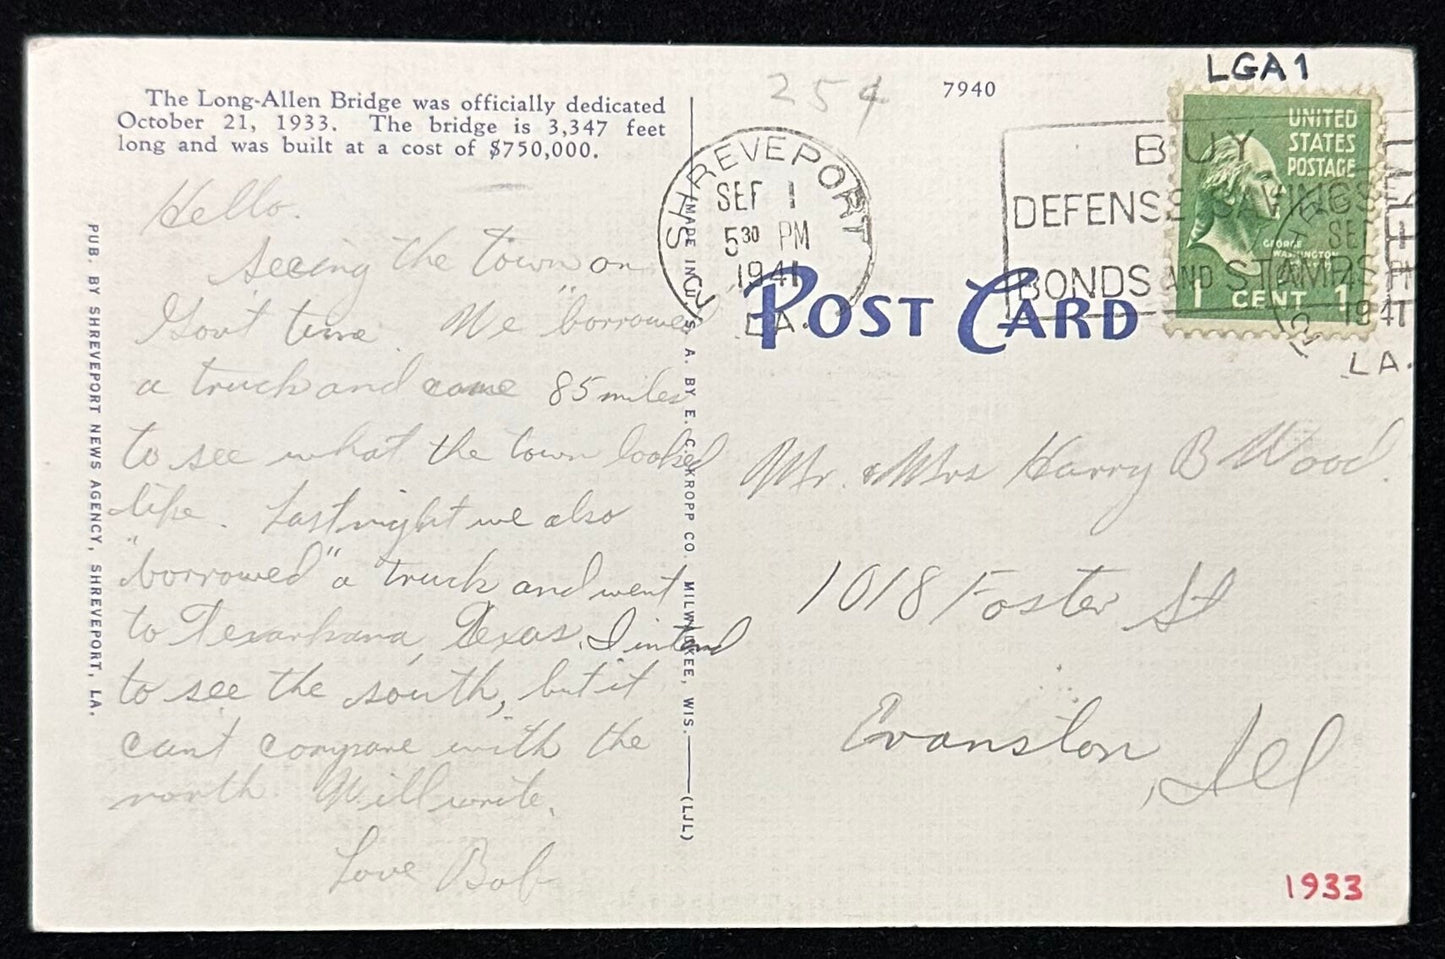 The Long-Allen Bridge was officially dedicated
October 21, 1933. The bridge is 3,347 feet
long and was built at a cost of $750,000.
Hello.
Seeing the town on
Gov't time. We "borrowed"
a truck and came 85 miles
to see what the town looked
like. Last night we also
"borrowed" a truck and went
to Texarkana, Texas. I intend
to see the south, but it
can't compare with the
north. Will write.
Love Bob
PUB. BY SHREVEPORT NEWS AGENCY, SHREVEPORT, LA.
MADE IN U. S. A. BY E. C. KROPP CO. MILWAUKEE, WIS.
(LJL)
25¢
7940
LGA1
SHREVEPORT
SEP 1
5 30 PM
1941
LA.
BUY
DEFENSE SAVINGS
BONDS AND STAMPS
UNITED
STATES
POSTAGE
GEORGE
WASHINGTON
1 CENT 1
SEP
1941
LA.
POST CARD
Mr. & Mrs Harry B Wood.
1018 Foster St
Evanston, Ill
1933